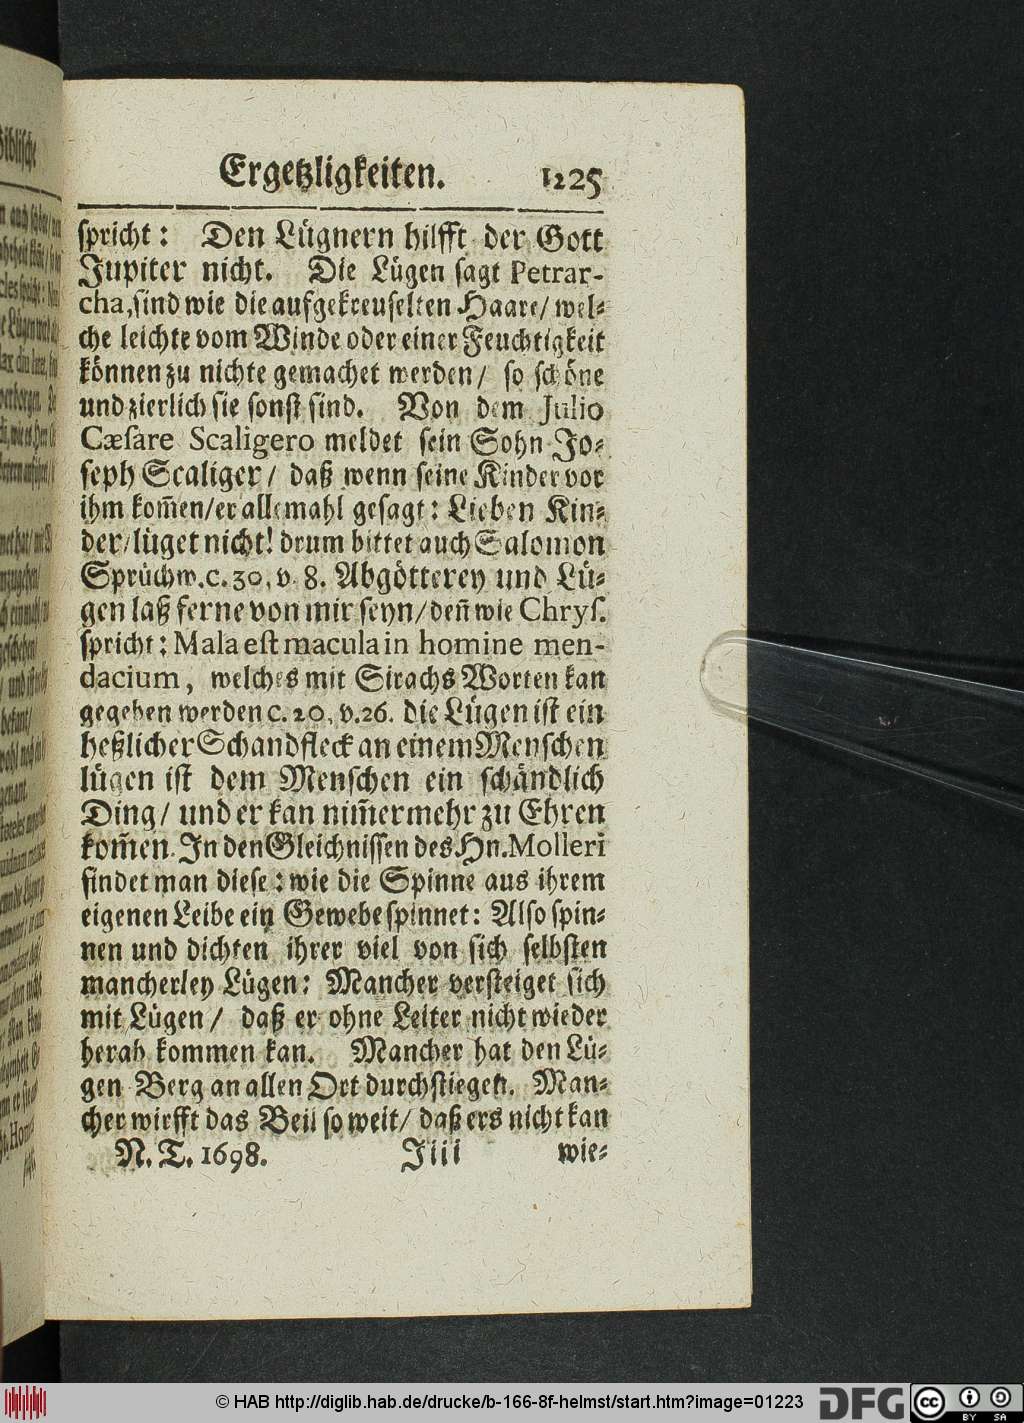 Ergetzligkeiten. 1225
spricht: Den Lügnern hilfft der Gott
Jupiter nicht. Die Lügen sagt Petrar-
cha, sind wie die aufgekreuselten Haare/ wel-
che leichte vom Winde oder einer Feuchtigkeit
können zu nichte gemachet werden/ so schöne
und zierlich sie sonst sind. Von dem Julio
Cæsare Scaligero meldet sein Sohn Jo-
seph Scaliger/ daß wenn seine Kinder vor
ihm kom̃en/ er allemahl gesagt: Lieben Kin-
der/ lüget nicht! drum bittet auch Salomon
Sprüchw. c. 30, v. 8. Abgötterey und Lü-
gen laß ferne von mir seyn/ den̄ wie Chrys.
spricht: Mala est macula in homine men-
dacium, welches mit Sirachs Worten kan
gegeben werden c. 20, v. 26. die Lügen ist ein
heßlicher Schandfleck an einem Menschen
lügen ist dem Menschen ein schändlich
Ding/ und er kan nim̃ermehr zu Ehren
kom̃en. In den Gleichnissen des Hn. Molleri
findet man diese: wie die Spinne aus ihrem
eigenen Leibe ein Gewebe spinnet: Also spin-
nen und dichten ihrer viel von sich selbsten
mancherley Lügen: Mancher versteiget sich
mit Lügen/ daß er ohne Leiter nicht wieder
herab kommen kan. Mancher hat den Lü-
gen Berg an allen Ort durchstiegen. Man-
cher wirfft das Beil so weit/ daß ers nicht kan
N. T. 1698. Jiii wie-
© HAB http://diglib.hab.de/drucke/b-166-8f-helmst/start.htm?image=01223
DFG
cc BY SA